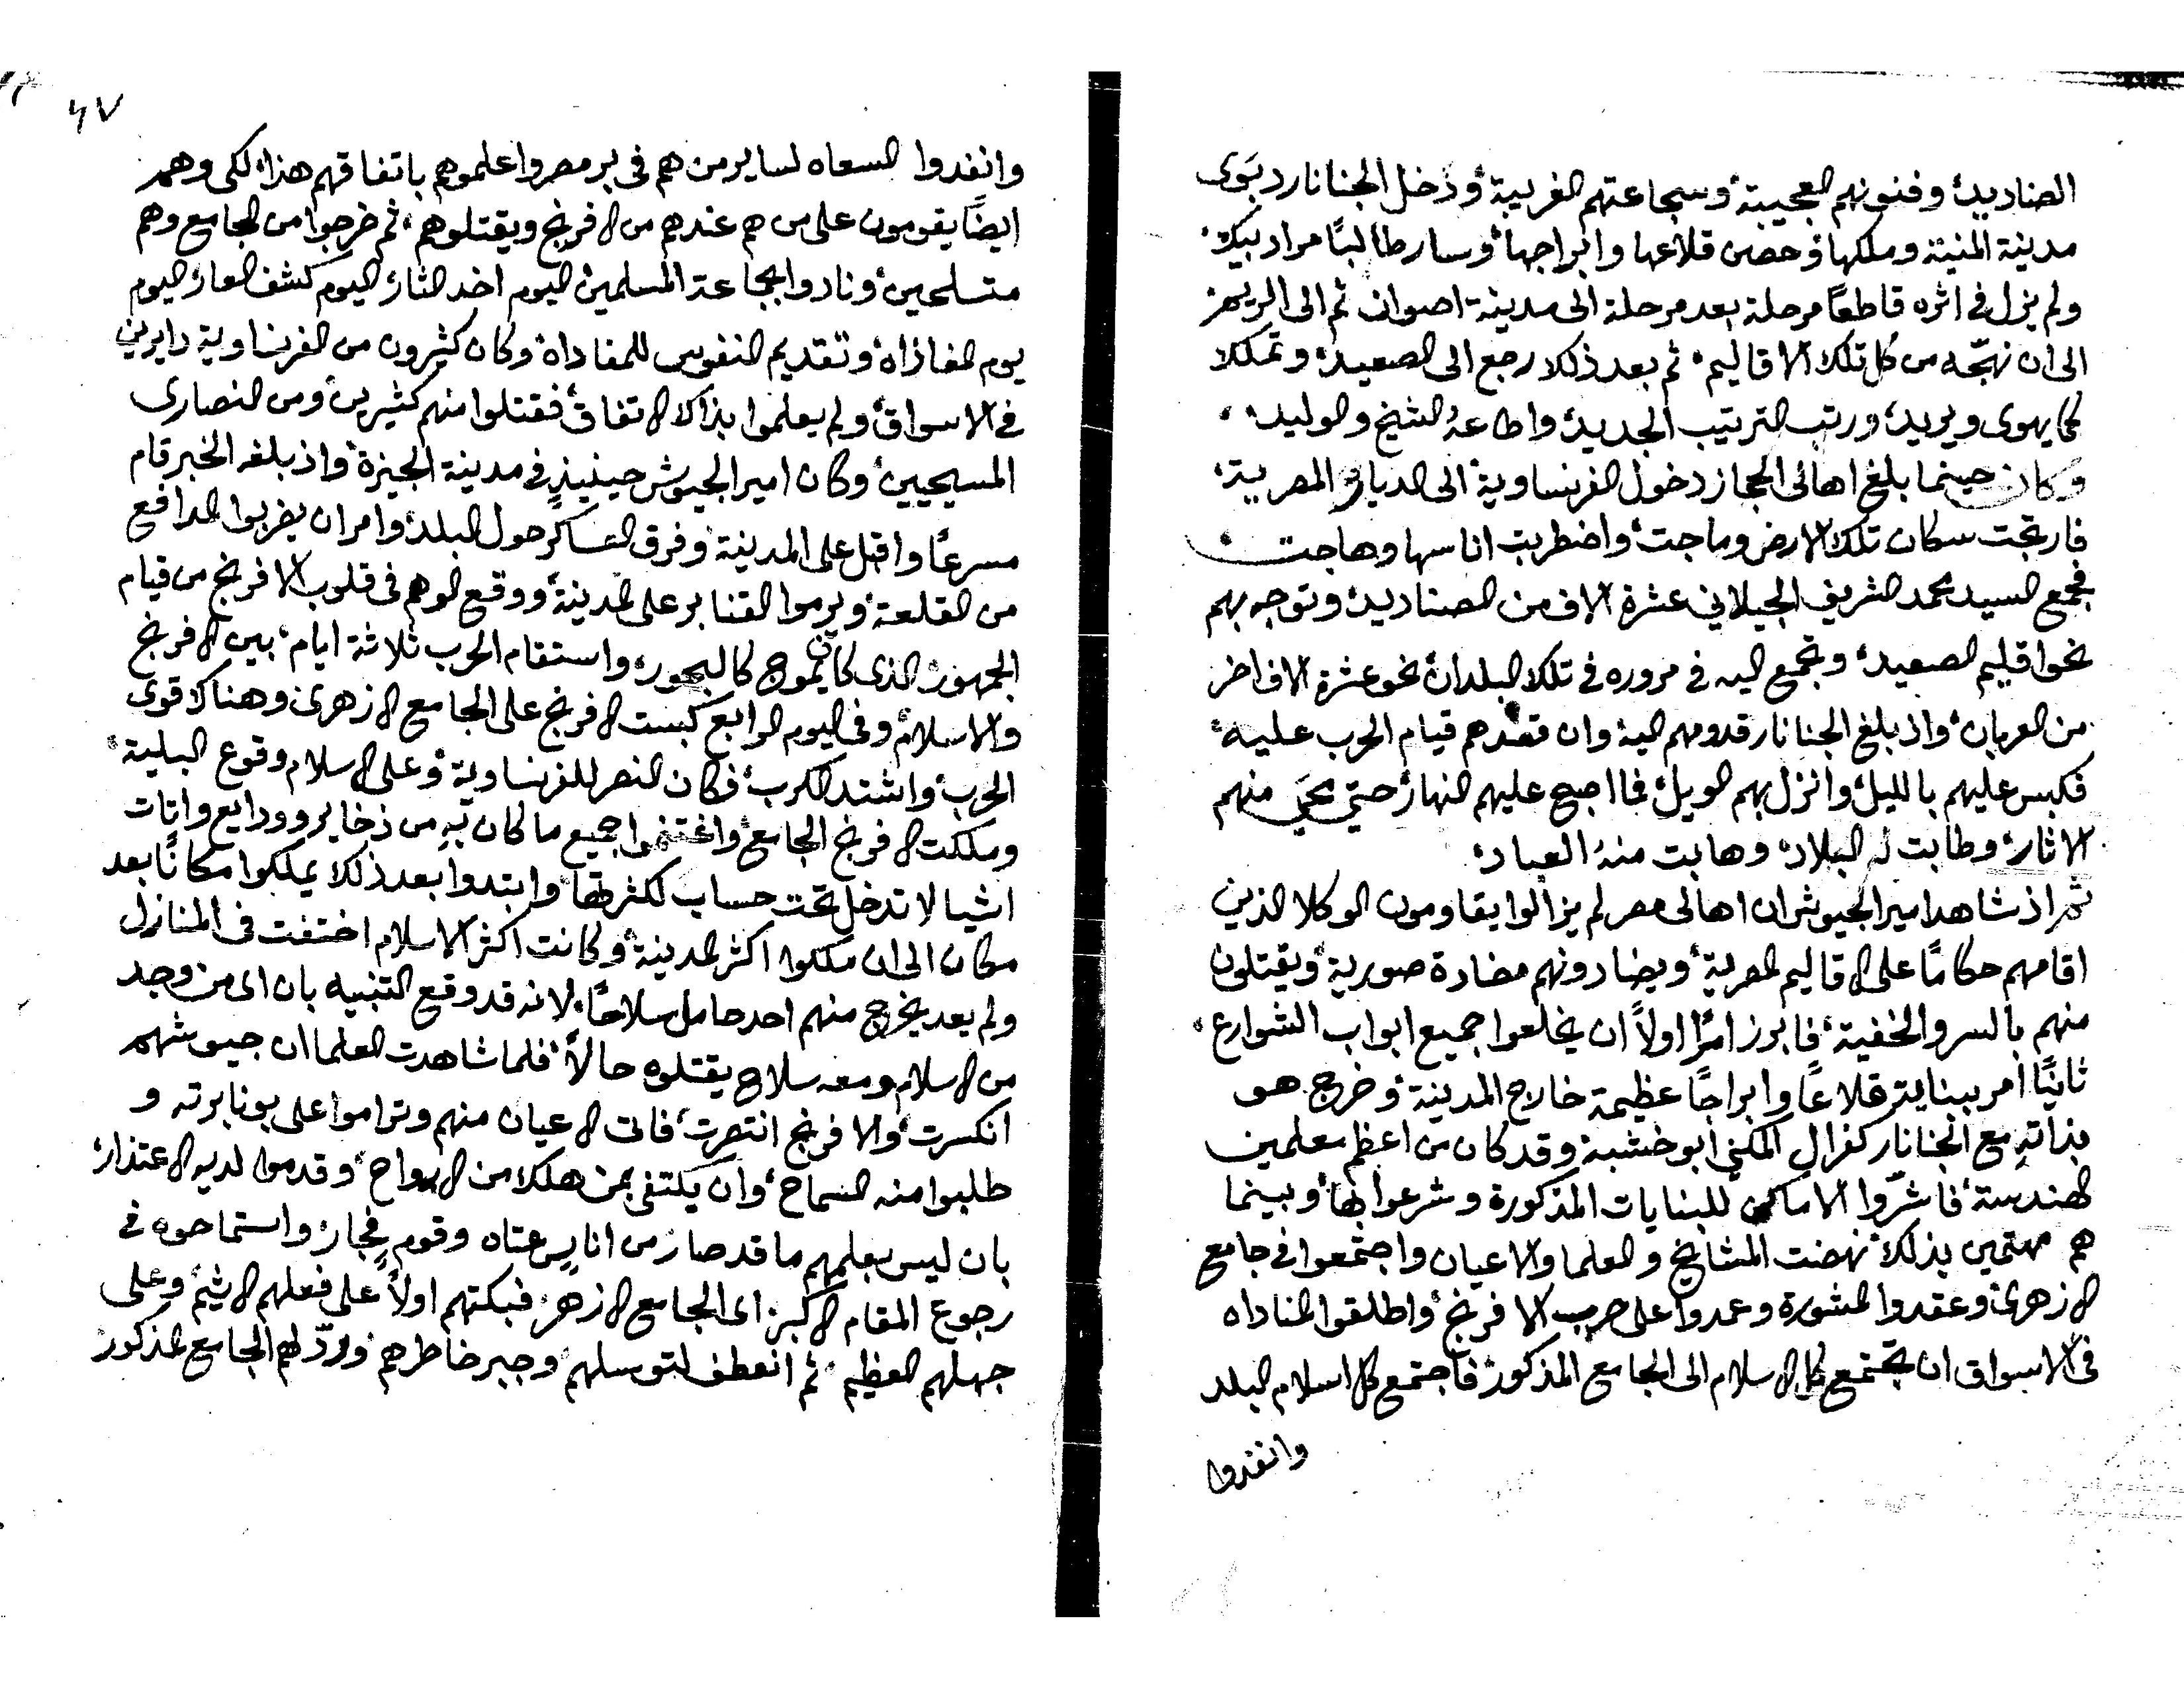 الصناديد، وفنونهم العجيبة، وسجاعتهم الغريبة، ودخل الجنانار ديوى
مدينة المنية وملكها، وحصن قلاعها وابراجها، وسار طالبًا مراد بيك،
ولم يزل في اثره قاطعًا مرحلة بعد مرحلة الى مدينة اصوان ثم الى البريم
الى ان نهجه من كل تلك الاقاليم، ثم بعد ذلك رجع الى الصعيد، وتملك
كما يهوى ويريد، ورتب الترتيب الجديد، واطاعهُ الشيخ والوليد،
وكان حينما بلغ اهالى الحجاز دخول الفرنساوية الى الديار المصرية،
فارتجت سكان تلك الارض وماجت، واضطربت اناسها وهاجت،
فجمع السيد محمد الشريف الجيلاني عشرة الاف من الصناديد، وتوجه بهم
نحو اقليم الصعيد، وتجمع اليه في مروره في تلك البلدان، نحو عشرة الاف اخر
من العربان، واذ بلغ الجنانار قدومهم اليه، وان قصدهم قيام الحرب عليه،
فكبس عليهم بالليل، وانزل بهم الويل، فما اصبح عليهم النهار، حتى محَى منهم
الاثار، وطابت له البلاد، وهابت منهُ العباد،
ثم اذ شاهد امير الجيوش ان اهالى مصر لم يزالوا يقاومون الوكلا الذين
اقامهم حكامًا على الاقاليم المصرية، ويضادونهم مضادة صورية، ويقتلون
منهم بالسر والخفية، فابرز امرًا اولاً ان يخلعوا جميع ابواب الشوارع،
ثانيًا امر ببناية قلاعًا وابراجًا عظيمة خارج المدينة، وخرج هو
بذاتهِ مع الجنانار كفرال المكنى ابو خشبة وقد كان من اعظم معلمين
الهندسة، فاشرّوا الاماكن للبنايات المذكورة وشرعوا بها، وبينما
هم مهتمين بذلك، نهضت المشايخ والعلما والاعيان واجتمعوا في جامع
الازهرى، وعقدوا المشورة وعمدوا على حرب الافرنج، واطلقوا المناداه
في الاسواق ان تجتمع كل الاسلام الى الجامع المذكور، فاجتمع كل اسلام البلد
وانفدوا
٤٧
وانفدوا السعاه لساير من هم في بر مصر واعلموهم باتفاقهم هذا، لكى وهم
ايضًا يقومون على من هم عندهم من الافرنج ويقتلوهم، ثم خرجوا من الجامع وهم
متسلحين، ونادوا بجماعة المسلمين، اليوم اخد الثار، اليوم كشف العار، اليوم
يوم المغازاه، وتقديم النفوس للمفاداه، وكان كثيرون من الفرنساوية دايرين
في الاسواق، ولم يعلموا بذاك الاتفاق، فقتلوا منهم كثيرين، ومن النصارى
المسيحيين، وكان امير الجيوش حينيذٍ في مدينة الجيزة، واذ بلغه الخبر قام
مسرعًا واقبل على المدينة، وفرق العساكر حول البلد، وامر ان يضربوا المدافع
من القلعة، ويرموا القنابر على المدينة، ووقع الوهم في قلوب الافرنج من قيام
الجمهور، الذى كان يموج كالبحور، واستقام الحرب ثلاثة ايام، بين الافرنج
والاسلام، وفي اليوم الرابع كبست الافرنج على الجامع الازهرى، وهناك قوى
الحرب، واشتد الكرب، فكان النصر للفرنساوية، وعلى الاسلام وقوع البلية،
وملكت الافرنج الجامع، واغتنموا جميع ما كان بهِ من ذخاير وودايع واتات
اشيا لا تدخل تحت حساب لكثرتها، وابتدوا بعد ذلك يملكوا مكانًا بعد
مكان الى ان ملكوا اكثر المدينة، وكانت اكثر الاسلام اختفت في المنازل
ولم يعد يخرج منهم احد حامل سلاحًا، لانه قد وقع التنبيه بان اى من وجد
من الاسلام ومعه سلاح يقتلوه حالاً، فلما شاهدت العلما ان جيوشهم
انكسرت، والافرنج انتصرت، فاتى الاعيان منهم وتراموا على بونابرته و
طلبوا منه السماح، وان يكتفى بمن هلك من الارواح، وقدموا لديه الاعتذار،
بان ليس بعلمهم ما قد صار، من اناسٍ عتاه وقومٍ فجار، واستماحوه في
رجوع المقام الاكبر، اى الجامع الازهر، فبكتهم اولاً على فعلهم الاثيم، وعلى
جهلهم العظيم، ثم انعطف لتوسلهم، وجبر خاطرهم، وردّ لهم الجامع المذكور،